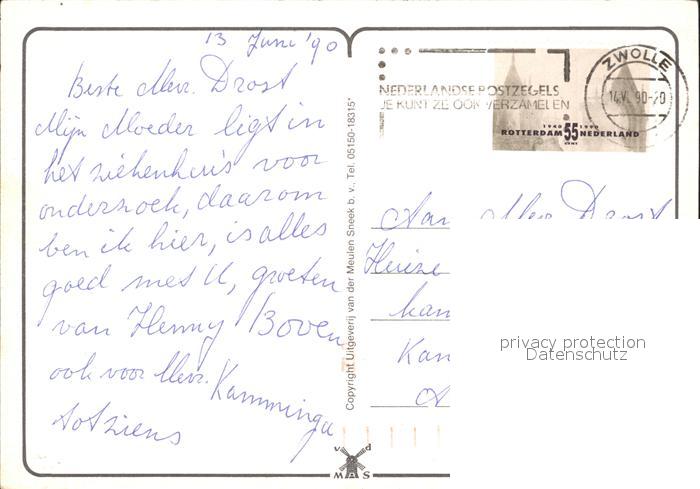 13 Juni '90
Beste Mevr. Drost
Mijn Moeder ligt in
het ziekenhuis voor
onderzoek, daarom
ben ik hier, is alles
goed met U, groeten
van Henny Boven
ook voor Mevr. Kamminga
totziens
Copyright Uitgeverij van der Meulen Sneek b. v., Tel. 05150-18315*
NEDERLANDSE POSTZEGELS
JE KUNT ZE OOK VERZAMELEN
ZWOLLE
14.V. 90-20
1940 1990
ROTTERDAM 55 NEDERLAND
CENT
Aan Mevr Drost
Huize
kam
Kam
A
privacy protection
Datenschutz
v d
MAS